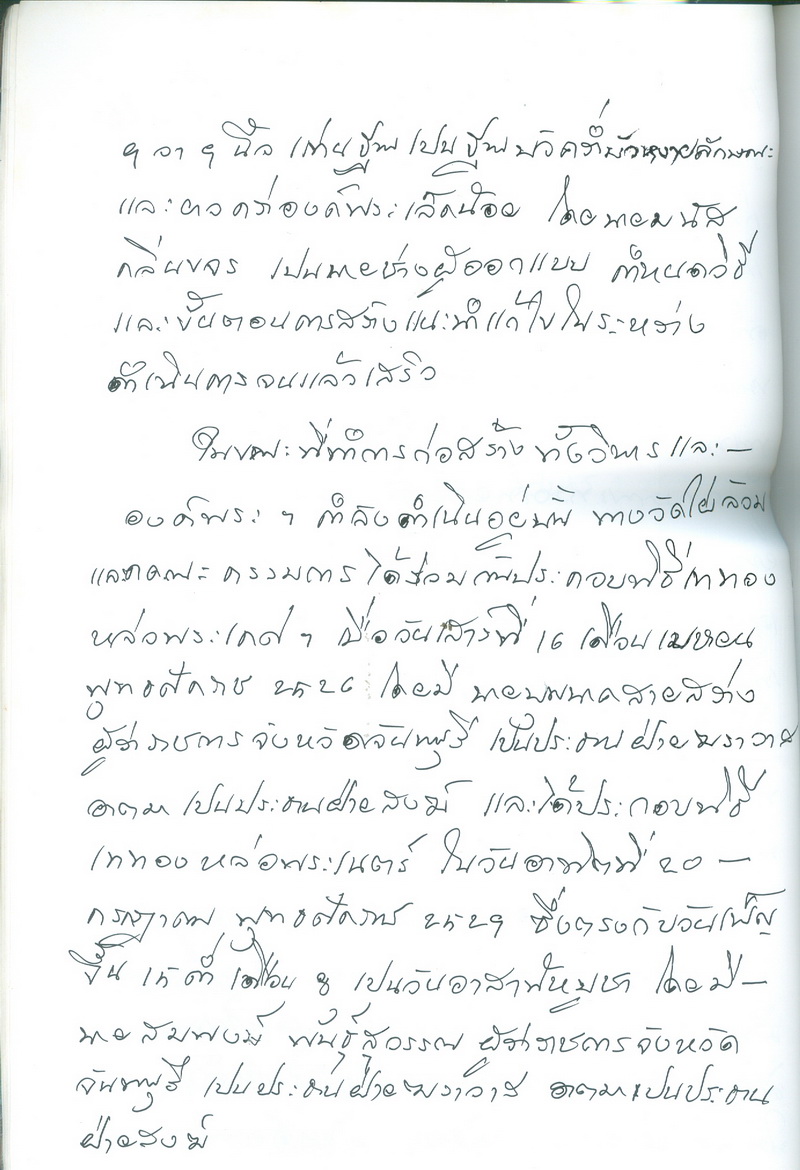 ๆ ลา ๆ นิ้ว แท่นชีพ เป็นชีพ
และตลอดทั่วองค์พระเล็กน้อย โดยนายมนัส
กลิ่นขจร เป็นนายช่างผู้ออกแบบ กำหนดวิธี
และขั้นตอนการสร้างแนะนำแก้ไขในระหว่าง
ดำเนินการจนแล้วเสร็จ
ในขณะที่ทำการก่อสร้าง ทั้งวิหารและ –
องค์พระ ฯ กำลังดำเนินอยู่นั้น ทางวัดใหม่
และคณะกรรมการ ได้ร่วมกันประกอบพิธีเททอง
หล่อพระเกศ ฯ เมื่อวันเสาร์ที่ ๑๖ เดือนเมษายน
พุทธศักราช ๒๕๒๖ โดยมี นายบุนนาค สายสว่าง
ผู้ว่าราชการจังหวัดจันทบุรี เป็นประธานฝ่ายฆราวาส
อาตมาเป็นประธานฝ่ายสงฆ์ และได้ประกอบพิธี
เททองหล่อพระเนตร์ ในวันอาทิตย์ที่ ๒๐ –
กรกฎาคม พุทธศักราช ๒๕๒๙ ซึ่งตรงกับวันเพ็ญ
ขึ้น ๑๕ ค่ำ เดือน ๘ เป็นวันอาสาฬหบูชา โดยมี –
นายสมพงษ์ พันธุ์สุวรรณ ผู้ว่าราชการจังหวัด
จันทบุรี เป็นประธานฝ่ายฆราวาส อาตมาเป็นประธาน
ฝ่ายสงฆ์